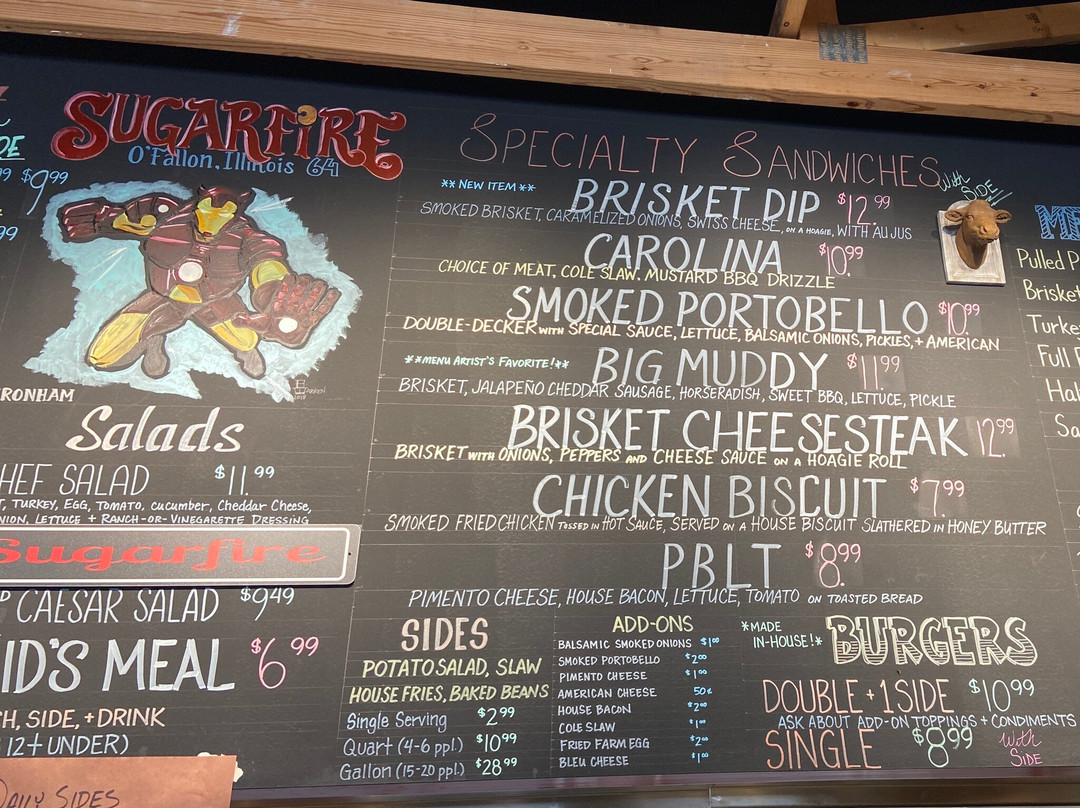 SUGARFIRE
O'Fallon, Illinois 64
DE
99 $9.99
99
RONHAM
DARREN
2018
Salads
HEF SALAD $11.99
T, TURKEY, EGG, TOMATO, cucumber, Cheddar Cheese,
NION, LETTUCE + RANCH-OR-VINEGARETTE DRESSING
Sugarfire
P CAESAR SALAD $9.49
ID'S MEAL $6.99
CH, SIDE, + DRINK
12+ UNDER)
DAILY SIDES
SPECIALTY SANDWICHES With SIDE
** NEW ITEM ** BRISKET DIP $12.99
SMOKED BRISKET, CARAMELIZED ONIONS, SWISS CHEESE, ON A HOAGIE, WITH AU JUS
CAROLINA $10.99
CHOICE OF MEAT, COLE SLAW, MUSTARD BBQ DRIZZLE
SMOKED PORTOBELLO $10.99
DOUBLE-DECKER WITH SPECIAL SAUCE, LETTUCE, BALSAMIC ONIONS, PICKLES, + AMERICAN
**MENU ARTIST'S FAVORITE!** BIG MUDDY $11.99
BRISKET, JALAPEÑO CHEDDAR SAUSAGE, HORSERADISH, SWEET BBQ, LETTUCE, PICKLE
BRISKET CHEESESTEAK 12.99
BRISKET WITH ONIONS, PEPPERS AND CHEESE SAUCE ON A HOAGIE ROLL
CHICKEN BISCUIT $7.99
SMOKED FRIED CHICKEN TOSSED IN HOT SAUCE, SERVED ON A HOUSE BISCUIT SLATHERED IN HONEY BUTTER
PBLT $8.99
PIMENTO CHEESE, HOUSE BACON, LETTUCE, TOMATO ON TOASTED BREAD
SIDES
POTATO SALAD, SLAW
HOUSE FRIES, BAKED BEANS
Single Serving $2.99
Quart (4-6 ppl.) $10.99
Gallon (15-20 ppl.) $28.99
ADD-ONS
BALSAMIC SMOKED ONIONS $1.00
SMOKED PORTOBELLO $2.00
PIMENTO CHEESE $1.00
AMERICAN CHEESE 50¢
HOUSE BACON $2.00
COLE SLAW $1.00
FRIED FARM EGG $2.00
BLEU CHEESE $1.00
*MADE
IN-HOUSE!* BURGERS
DOUBLE + 1 SIDE $10.99
ASK ABOUT ADD-ON TOPPINGS + CONDIMENTS
SINGLE $8.99 With SIDE
ME
Pulled P
Brisket
Turkey
Full
Hal
Sa